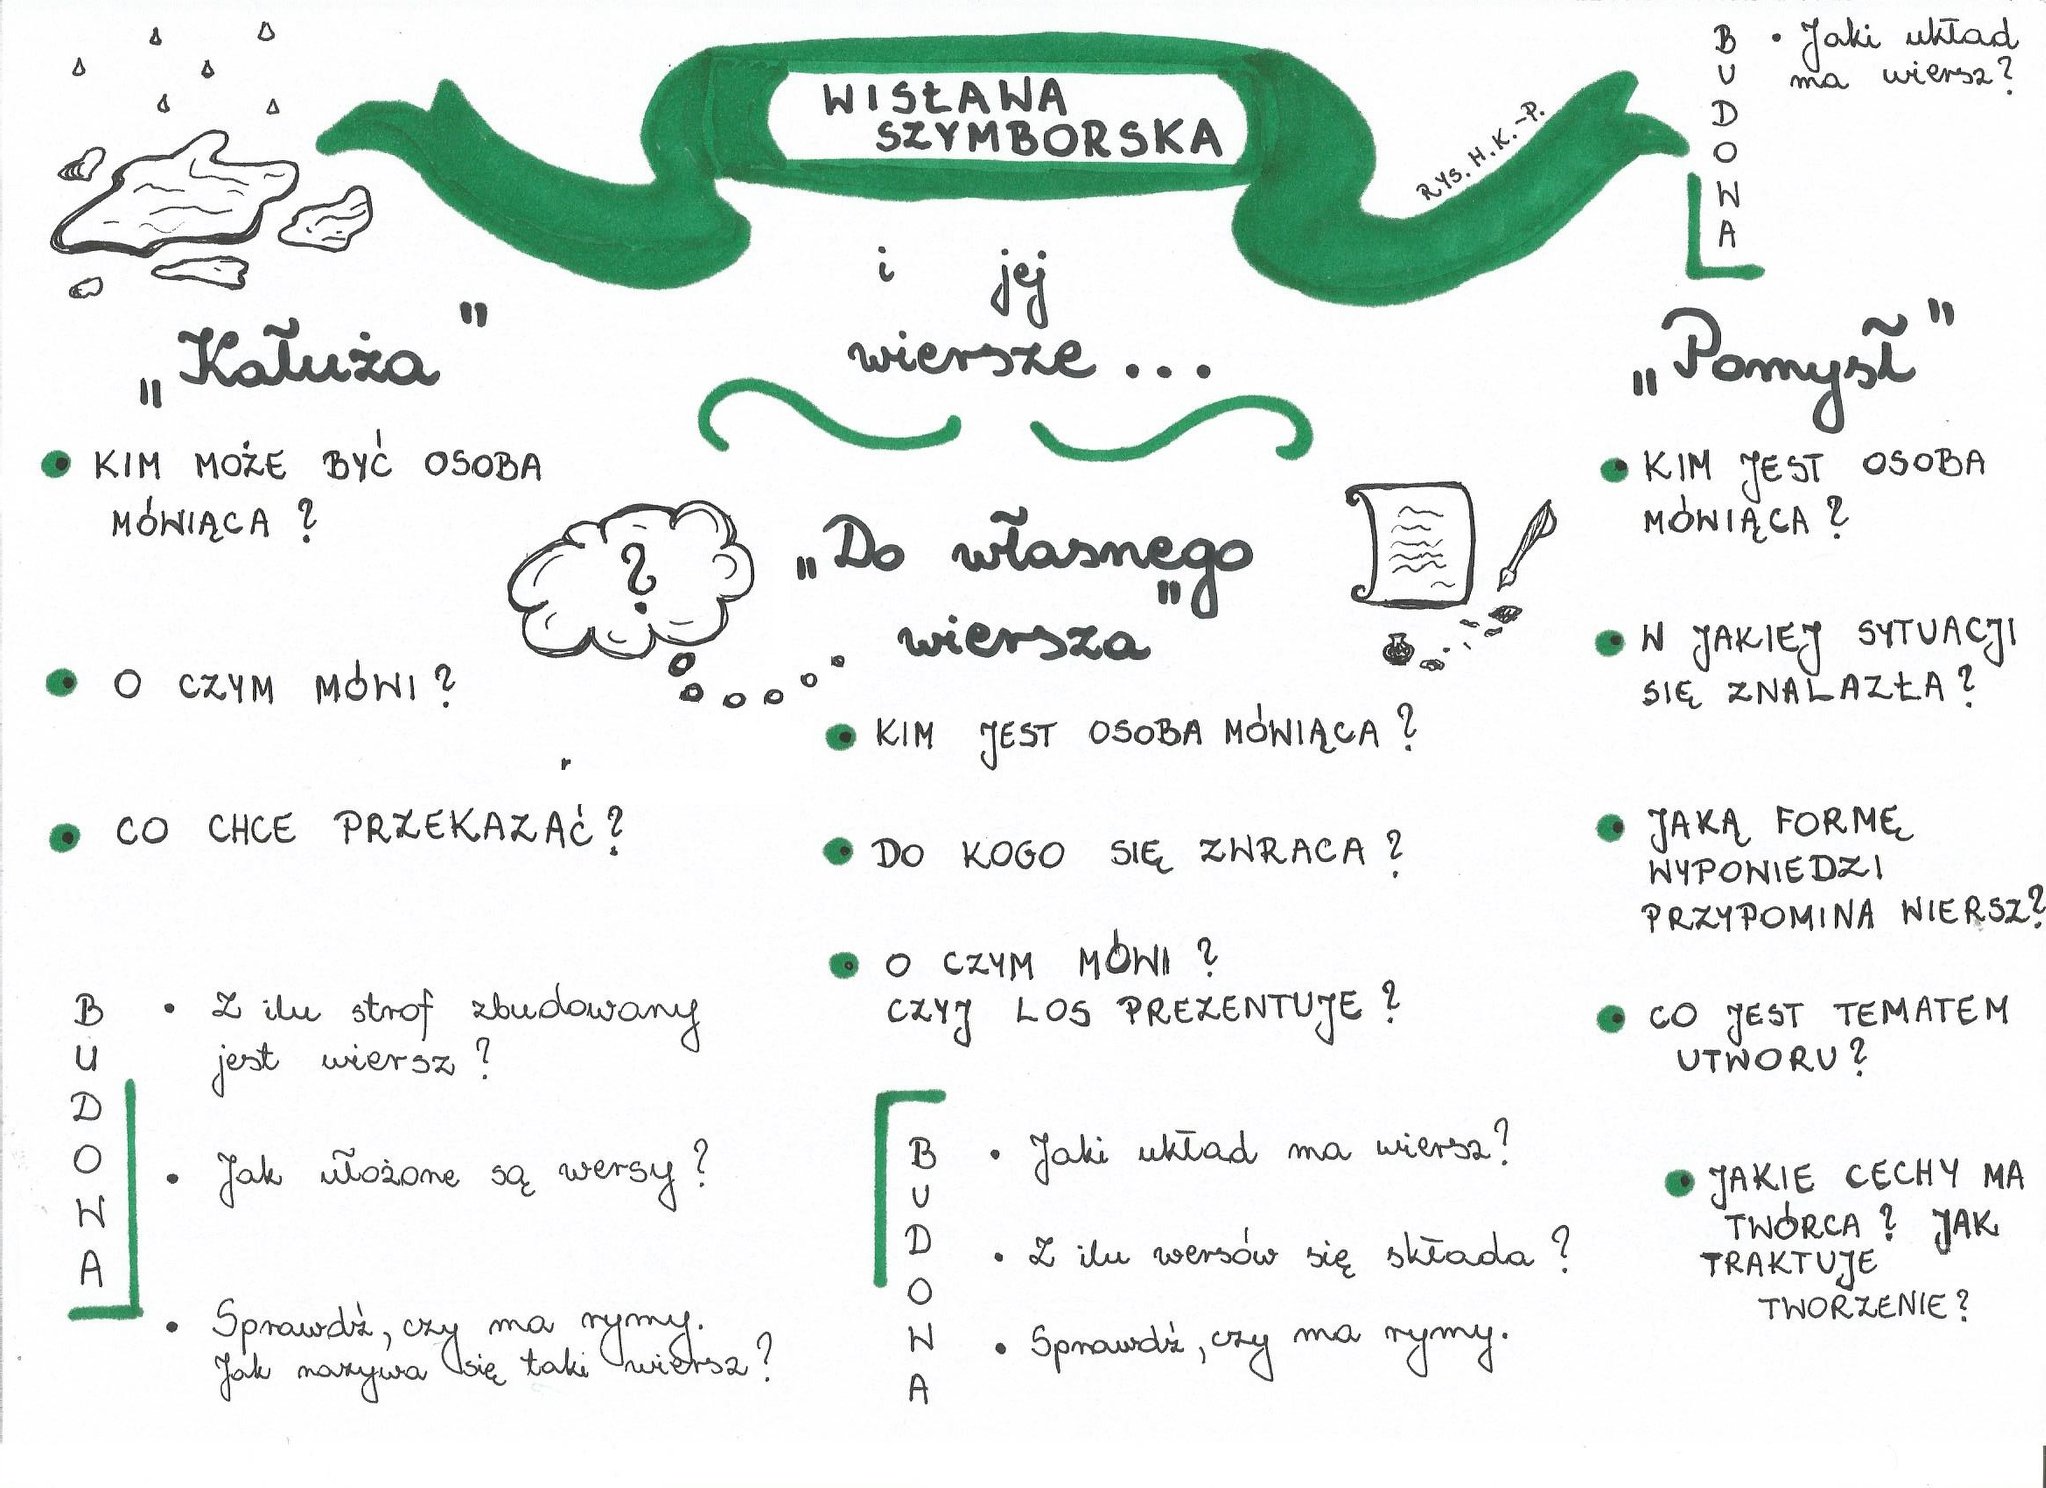 WISŁAWA
SZYMBORSKA
RYS. H. K.-P.
i jej
wiersze...
„Kałuża"
KIM MOŻE BYĆ OSOBA
MÓWIĄCA?
O CZYM MÓWI?
CO CHCE PRZEKAZAĆ?
BUDOWA
• Z ilu strof zbudowany
jest wiersz?
• Jak ułożone są wersy?
• Sprawdź, czy ma rymy.
Jak nazywa się taki wiersz?
?
„Do własnego
wiersza"
KIM JEST OSOBA MÓWIĄCA?
DO KOGO SIĘ ZWRACA?
O CZYM MÓWI?
CZYJ LOS PREZENTUJE?
BUDOWA
• Jaki układ ma wiersz?
• Z ilu wersów się składa?
• Sprawdź, czy ma rymy.
BUDOWA
• Jaki układ
ma wiersz?
„Pomysł"
KIM JEST OSOBA
MÓWIĄCA?
W JAKIEJ SYTUACJI
SIĘ ZNALAZŁA?
JAKĄ FORMĘ
WYPOWIEDZI
PRZYPOMINA WIERSZ?
CO JEST TEMATEM
UTWORU?
JAKIE CECHY MA
TWÓRCA? JAK
TRAKTUJE
TWORZENIE?